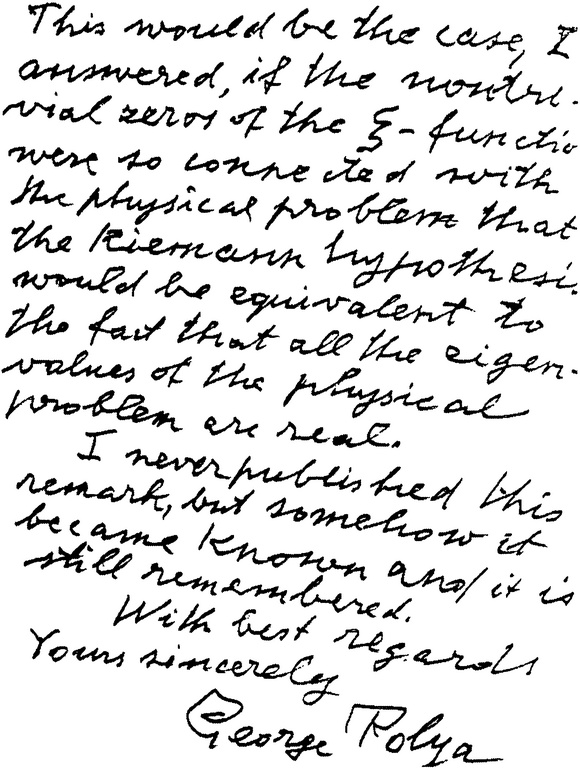 This would be the case, I
answered, if the nontri-
vial zeros of the ξ-functio
were so connected with
the physical problem that
the Riemann hypothesi
would be equivalent to
the fact that all the eigen-
values of the physical
problem are real.
I never published this
remark, but somehow it
became known and it is
still remembered.
With best regards
Yours sincerely
George Polya